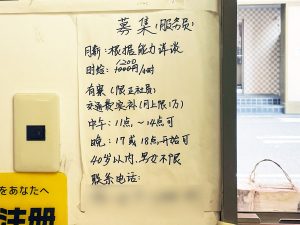 募集(服务员)
月薪:根据能力详谈
时给:1200 1000円/小时
有薬(限正社员)
交通费实补(月上限1万)
中午:11点,~14点可
晚:17或18点开始可
40岁以内,男女不限
联系电话:
をあなたへ
注册